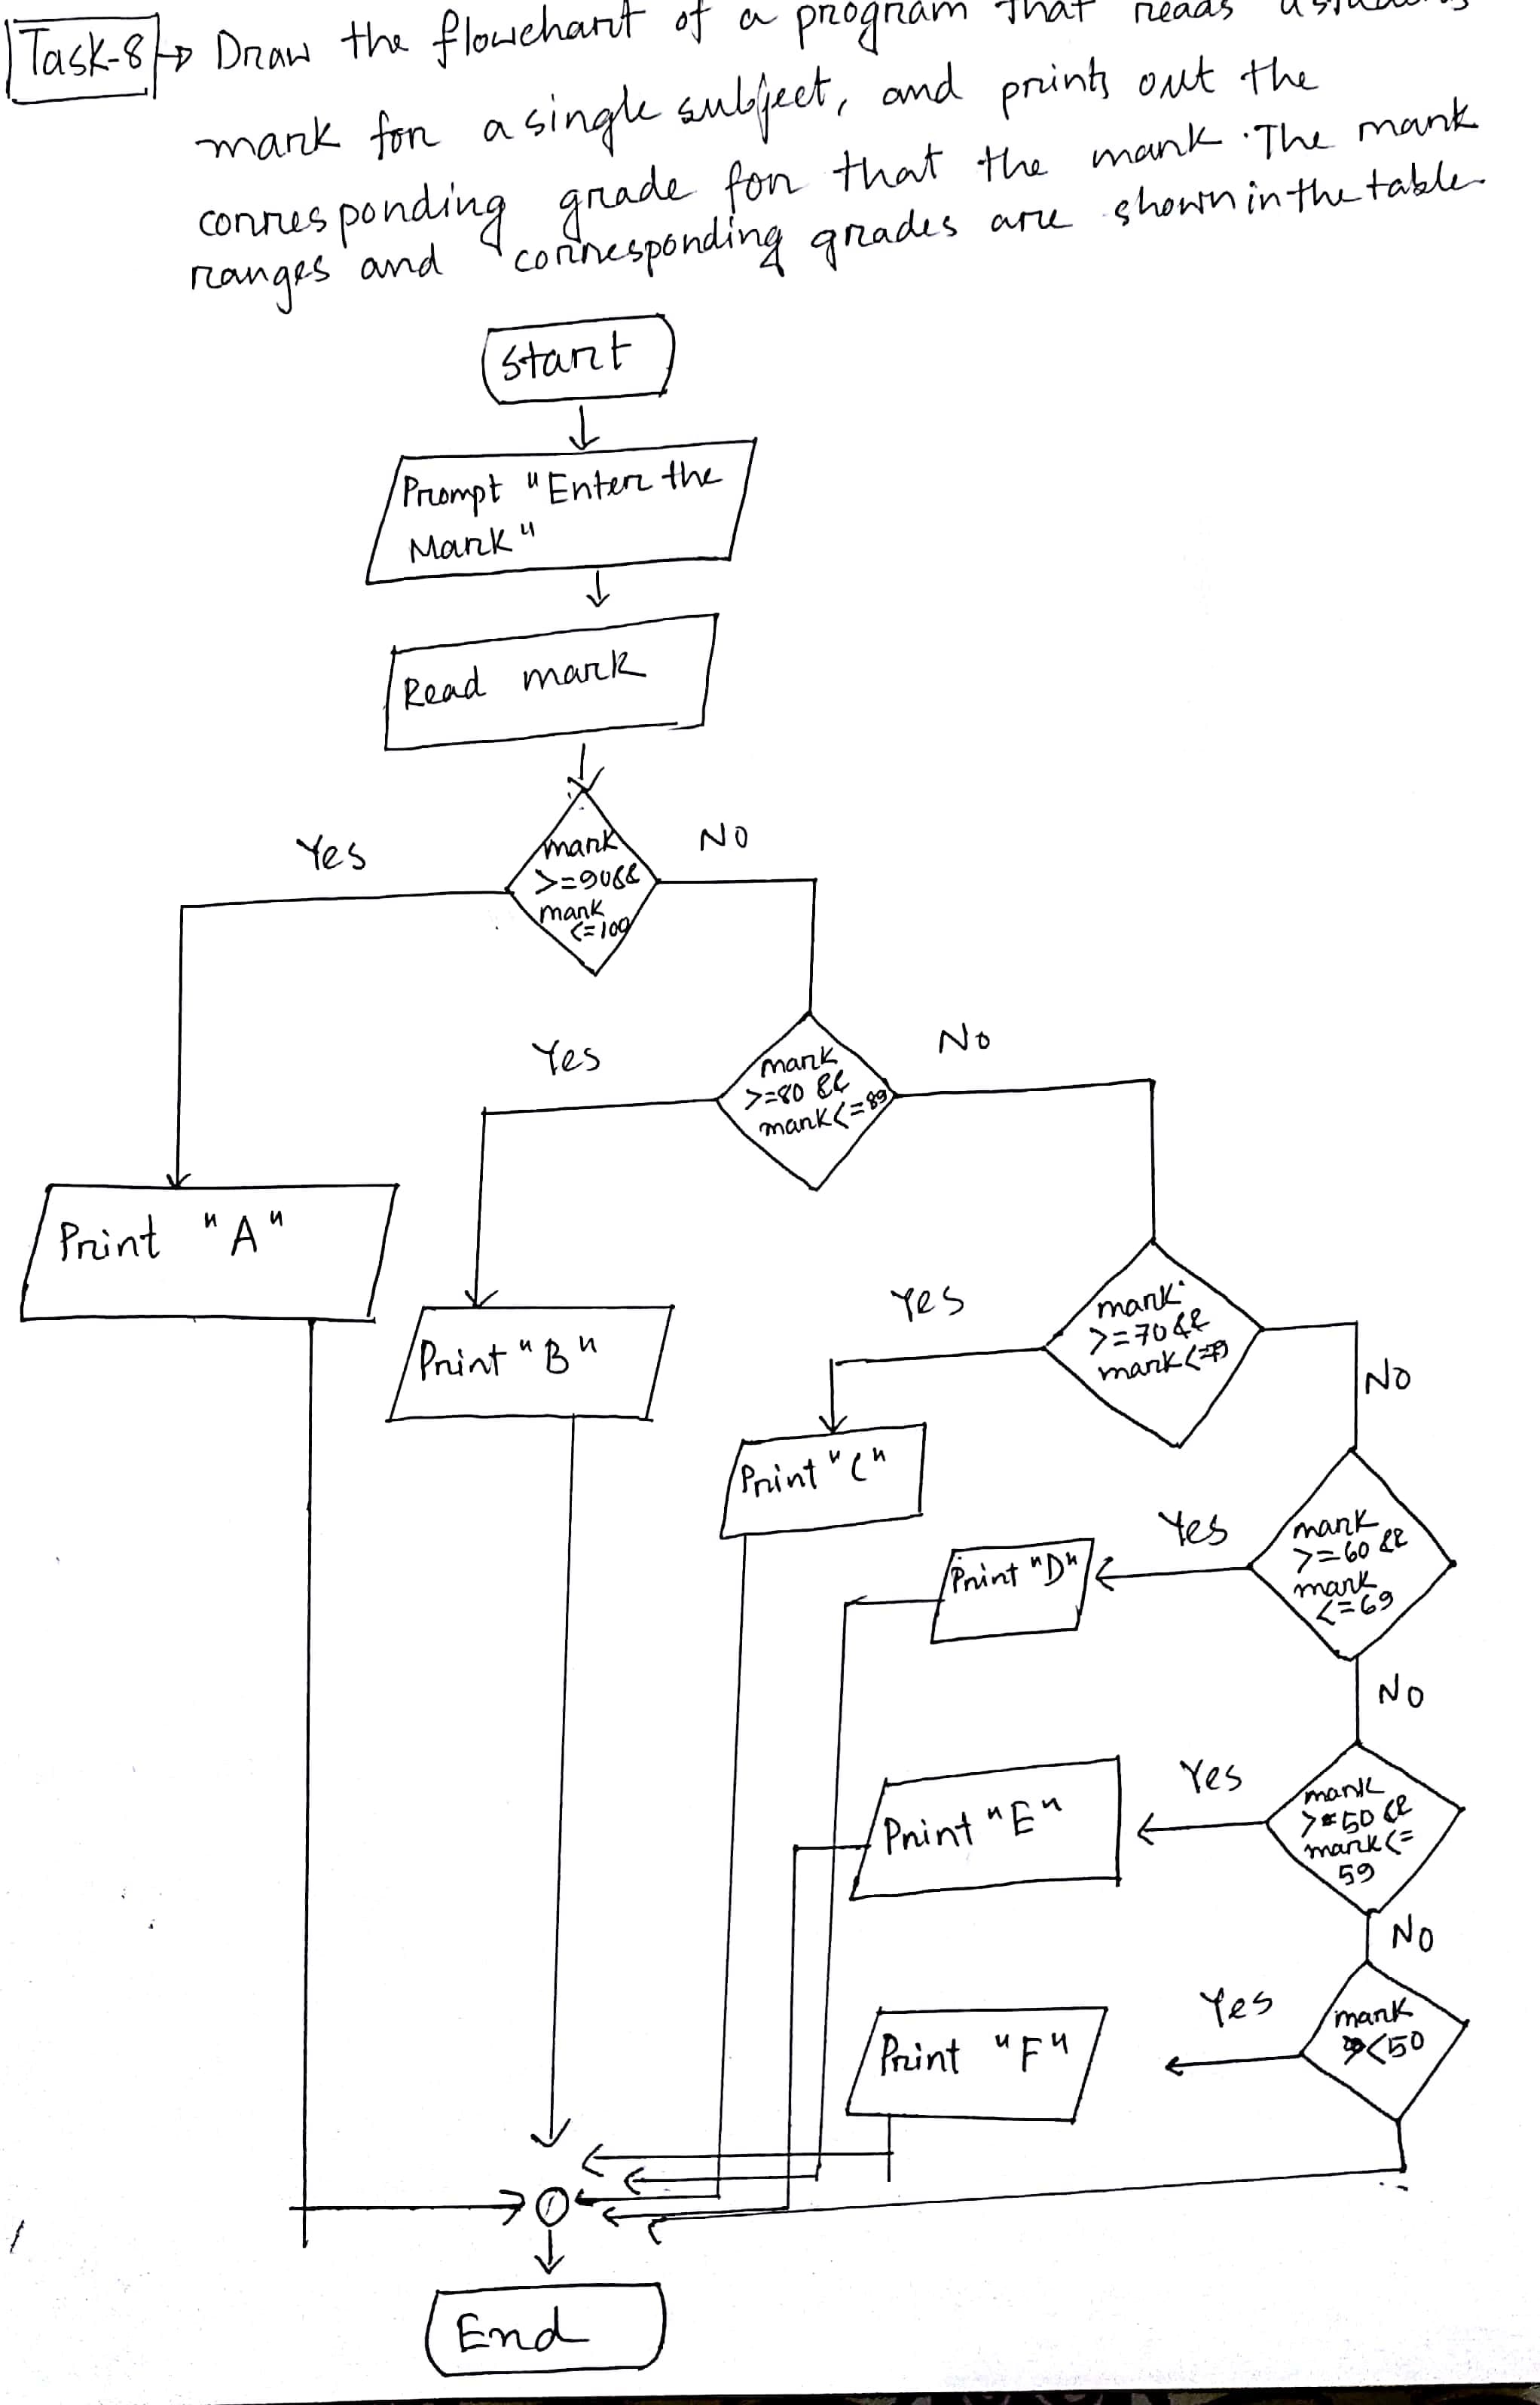 Task-8 → Draw the flowchart of a program that reads
mark for a single subject, and prints out the
corresponding grade for that the mark. The mark
ranges and corresponding grades are shown in the table.
Start
Prompt "Enter the
Mark"
Read mark
Yes
mark
>=90&&
mark
<=100
No
Yes
mark
>=80 &&
mark<=89
No
Print "A"
Yes
mark
>=70&&
mark<=79
No
Print "B"
Print "C"
Yes
mark
>=60 &&
mark
<=69
Print "D"
No
Yes
mark
>=50 &&
mark<=
59
Print "E"
No
Yes
mark
<50
Print "F"
End